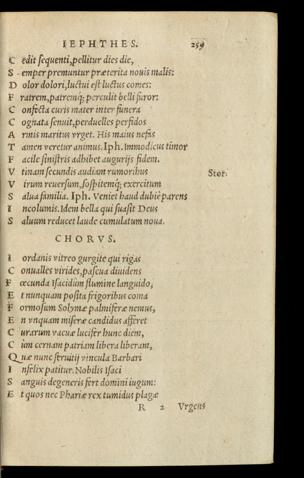 IEPHTHES. 259
C edit sequenti, pellitur dies die,
S emper premuntur præterita nouis malis:
D olor dolori, luctui est luctus comes:
F ratrem, patremq́; perculit belli furor:
C onfecta curis mater inter funera
C ognata senuit, perduelles perfidos
A rmis maritus vrget. His maius nefas
T amen veretur animus. Iph. Immodicus timor
F acile sinistris adhibet augurijs fidem.
V tinam secundis audiam rumoribus Stor.
V irum reuersum, sospitemq́; exercitum
S alua familia. Iph. Veniet haud dubiè parens
I ncolumis. Idem bella qui suasit Deus
S aluum reducet laude cumulatum noua.
CHORVS.
I ordanis vitreo gurgite qui rigas
C onualles virides, pascua diuidens
F œcunda Isacidûm flumine languido,
E t nunquam posita frigoribus coma
F ormosum Solymæ palmiferæ nemus,
E n vnquam miseræ candidus afferet
C urarum vacuæ lucifer hunc diem,
C ùm cernam patriam libera liberam,
Q uæ nunc seruitij vincula Barbari
I nfelix patitur. Nobilis Isaci
S anguis degeneris fert domini iugum:
E t quos nec Phariæ rex tumidus plagæ
R 2 Vrgens